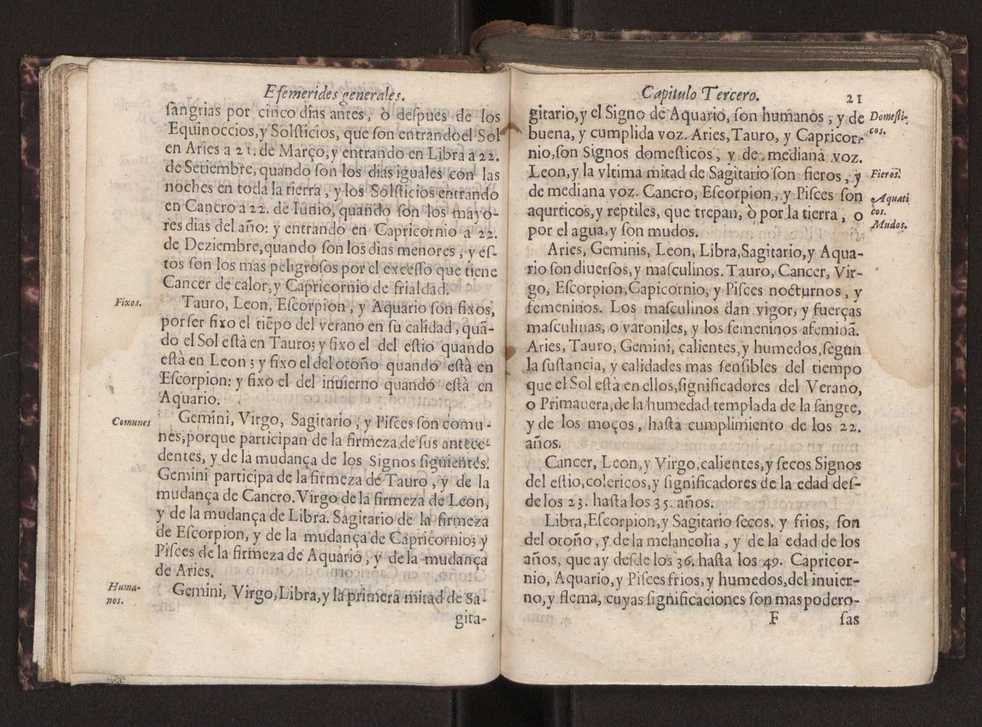 Efemerides generales.
ſangrias por cinco dias antes, ò deſpues de los
Equinoccios, y Solſticios, que ſon entrando el Sol
en Aries a 21. de Março, y entrando en Libra a 22.
de Setiembre, quando ſon los dias iguales con las
noches en toda la tierra, y los Solſticios entrando
en Cancro a 22. de Iunio, quando ſon los mayo-
res dias del año: y entrando en Capricornio a 22.
de Deziembre, quando ſon los dias menores, y eſ-
tos ſon los mas peligroſos por el exceſſo que tiene
Cancer de calor, y Capricornio de frialdad.
Fixos.
Tauro, Leon, Eſcorpion, y Aquario ſon fixos,
por ſer fixo el tiẽpo del verano en ſu calidad, quã-
do el Sol eſtà en Tauro; y fixo el del eſtio quando
eſtà en Leon; y fixo el del otoño quando eſtà en
Eſcorpion: y fixo el del inuierno quando eſtà en
Aquario.
Comunes
Gemini, Virgo, Sagitario, y Piſces ſon comu-
nes, porque participan de la firmeza de ſus antece-
dentes, y de la mudança de los Signos ſiguientes.
Gemini participa de la firmeza de Tauro, y de la
mudança de Cancro. Virgo de la firmeza de Leon,
y de la mudança de Libra. Sagitario de la firmeza
de Eſcorpion, y de la mudança de Capricornio; y
Piſces de la firmeza de Aquario, y de la mudança
de Aries.
Huma-
nos.
Gemini, Virgo, Libra, y la primera mitad de Sa-
gita-
Capitulo Tercero. 21
gitario, y el Signo de Aquario, ſon humanos, y de
Domeſti-
cos.
buena, y cumplida voz. Aries, Tauro, y Capricor-
nio, ſon Signos domeſticos, y de mediana voz.
Leon, y la vltima mitad de Sagitario ſon fieros, y
Fieros.
de mediana voz. Cancro, Eſcorpion, y Piſces ſon
Aquati
cos.
aqurticos, y reptiles, que trepan, ò por la tierra, o
Mudos.
por el agua, y ſon mudos.
Aries, Geminis, Leon, Libra, Sagitario, y Aqua-
rio ſon diuerſos, y maſculinos. Tauro, Cancer, Vir-
go, Eſcorpion, Capicornio, y Piſces nocturnos, y
femeninos. Los maſculinos dan vigor, y fuerças
maſculinas, o varoniles, y los femeninos afeminã.
Aries, Tauro, Gemini, calientes, y humedos, ſegun
la ſuſtancia, y calidades mas ſenſibles del tiempo
que el Sol eſta en ellos, ſignificadores del Verano,
o Primauera, de la humedad templada de la ſangre,
y de los moços, haſta cumplimiento de los 22.
años.
Cancer, Leon, y Virgo, calientes, y ſecos Signos
del eſtio, colericos, y ſignificadores de la edad deſ-
de los 23. haſta los 35. años.
Libra, Eſcorpion, y Sagitario ſecos, y frios, ſon
del otoño, y de la melancolia, y de la edad de los
años, que ay deſde los 36. haſta los 49. Capricor-
nio, Aquario, y Piſces frios, y humedos, del inuier-
no, y flema, cuyas ſignificaciones ſon mas podero-
F ſas